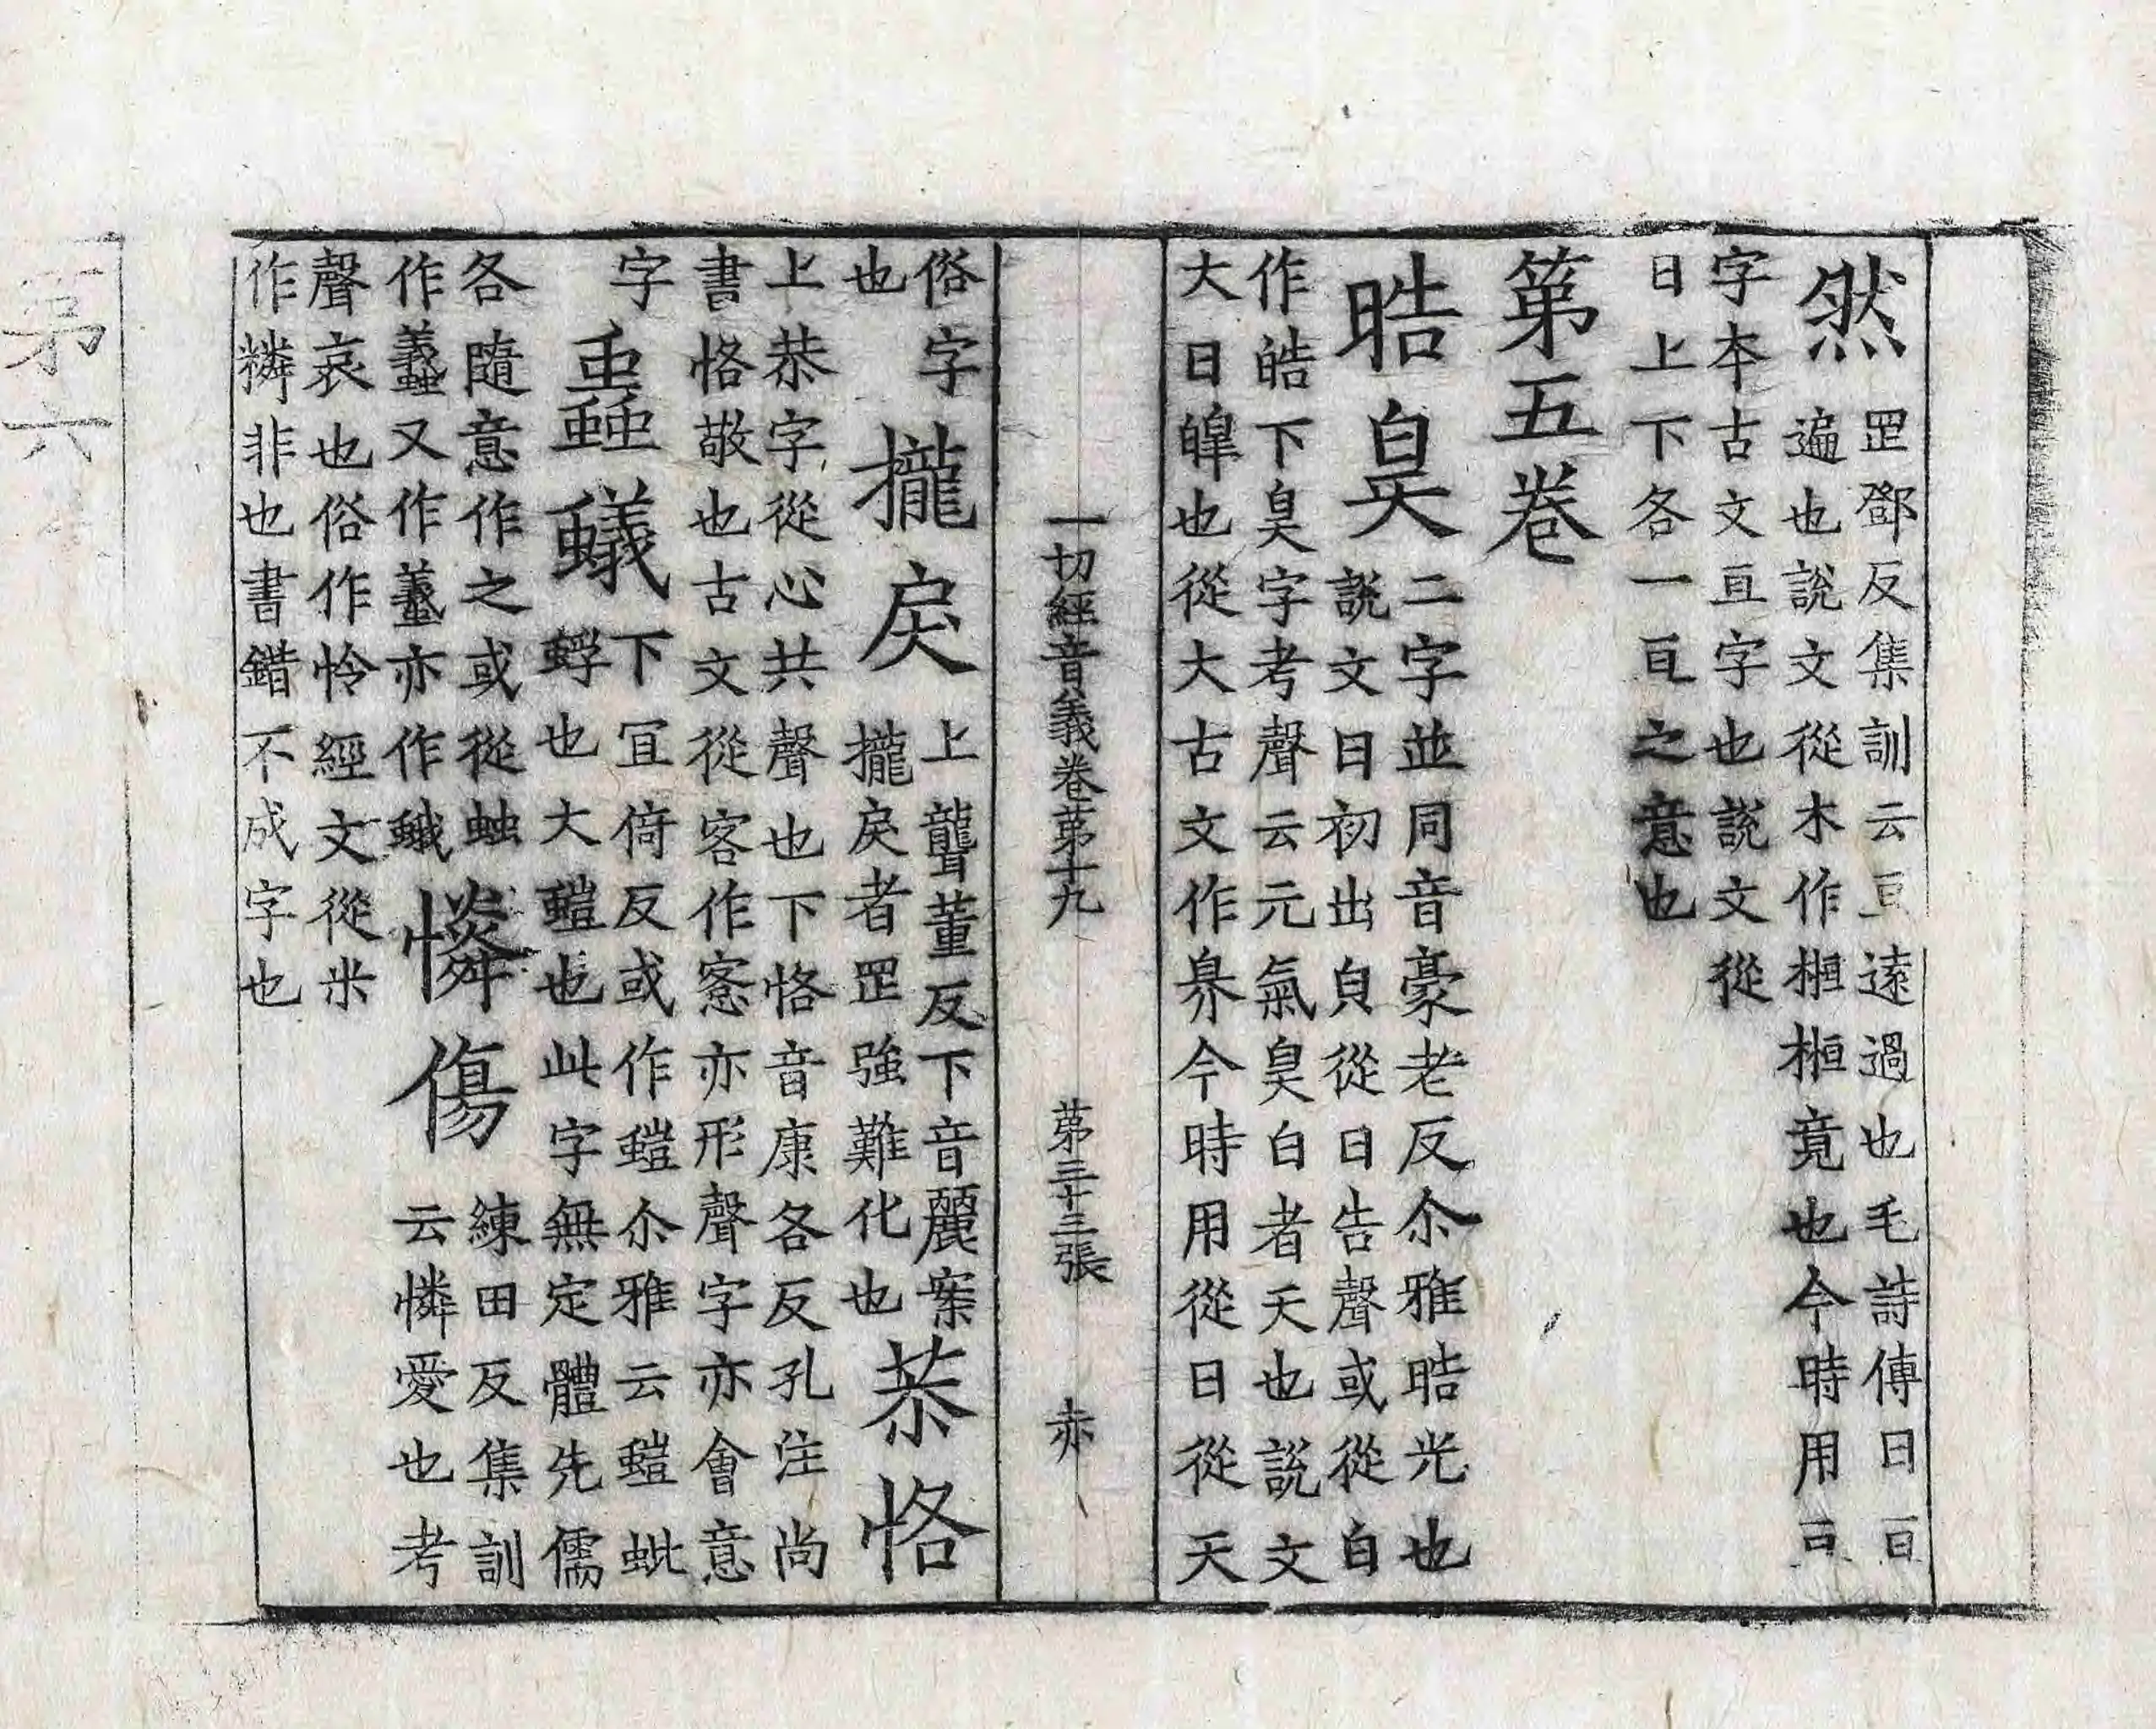 然 罡鄧反集訓云亘遠過也毛詩傳曰亘
遍也說文從木作㮓㮓竟也今時用亘
字本古文亙字也說文從
日上下各一亘之意也
第五卷
晧昊 二字並同音豪老反尒雅晧光也
說文日初出皃從日告聲或從白
作皓下昊字考聲云元氣昊昊白者天也說文
大日皥也從大古文作昦今時用從日從天
一切經音義卷第十九 第三十三張 亦
俗字
也
攏戾 上聾董反下音麗案
攏戾者罡強難化也
恭恪
上恭字從心共聲也下恪音康各反孔注尚
書恪敬也古文從客作愙亦形聲字亦會意
字
蚍蟻 下冝倚反或作螘尒雅云螘蚍
蜉也大螘也此字無定體先儒
各隨意作之或從䖵
作蟻又作䘷亦作蛾
憐傷 練田反集訓
云憐愛也考
聲哀也俗作怜經文從米
作㷠非也書錯不成字也
第六